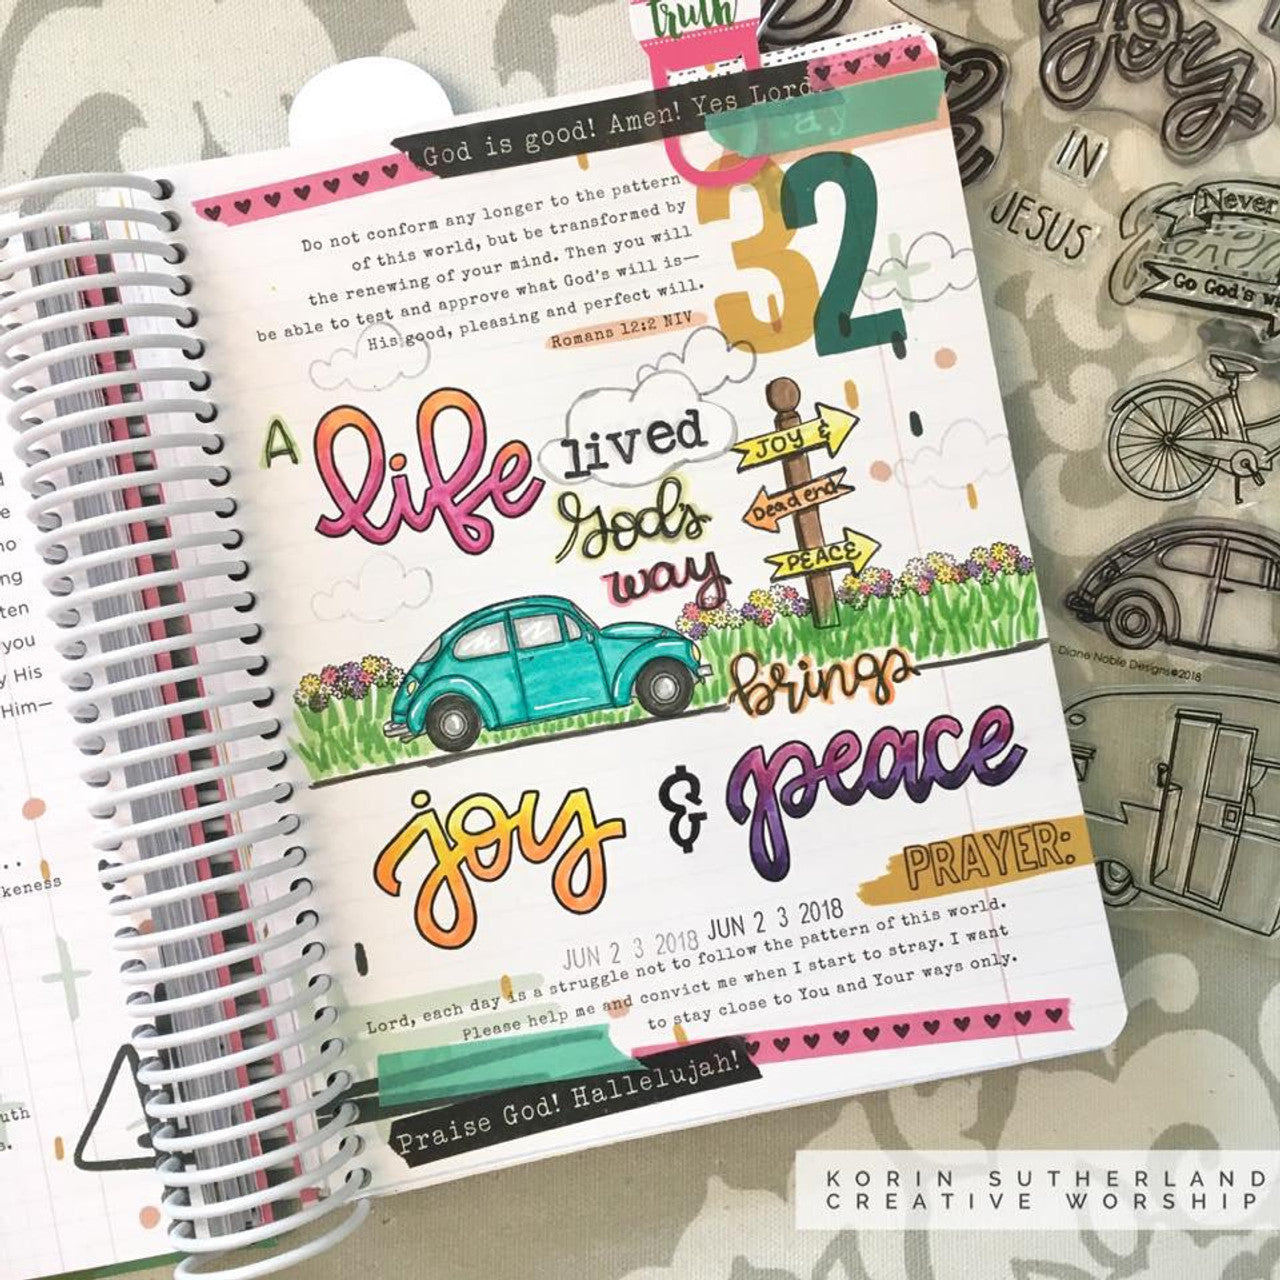 truth
God is good! Amen! Yes Lord!
ay
32
Do not conform any longer to the pattern
of this world, but be transformed by
the renewing of your mind. Then you will
be able to test and approve what God's will is—
His good, pleasing and perfect will.
Romans 12:2 NIV
A life lived
God's
way
JOY &
Dead end
PEACE
brings
joy & peace
PRAYER:
JUN 2 3 2018 JUN 2 3 2018
Lord, each day is a struggle not to follow the pattern of this world.
Please help me and convict me when I start to stray. I want
to stay close to You and Your ways only.
Praise God! Hallelujah!
joy
IN
JESUS
Never
Go God's
Diane Noble Designs©2018
ng
ten
you
y His
Him—
keness
uth
s.
KORIN SUTHERLAND
CREATIVE WORSHIP